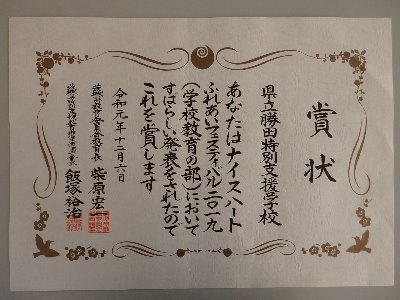 賞状
県立勝田特別支援学校
あなたはナイスハート
ふれあいフェスティバル二〇一九
(学校教育の部)において
すばらしい発表をされたので
これを賞します
令和元年十二月六日
柴原宏一
飯塚裕治